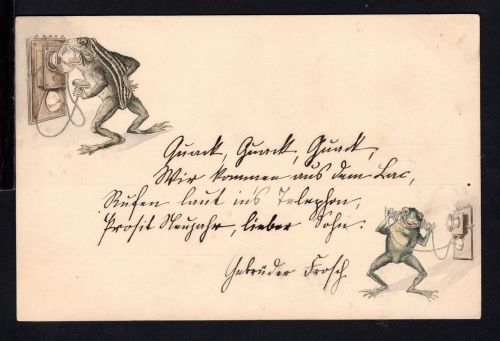 Quack, Quack, Quack,
Wir kommen aus dem Lac,
Rufen laut in's Telephon,
Prosit Neujahr, lieber Sohn.
Gebrüder Frosch.